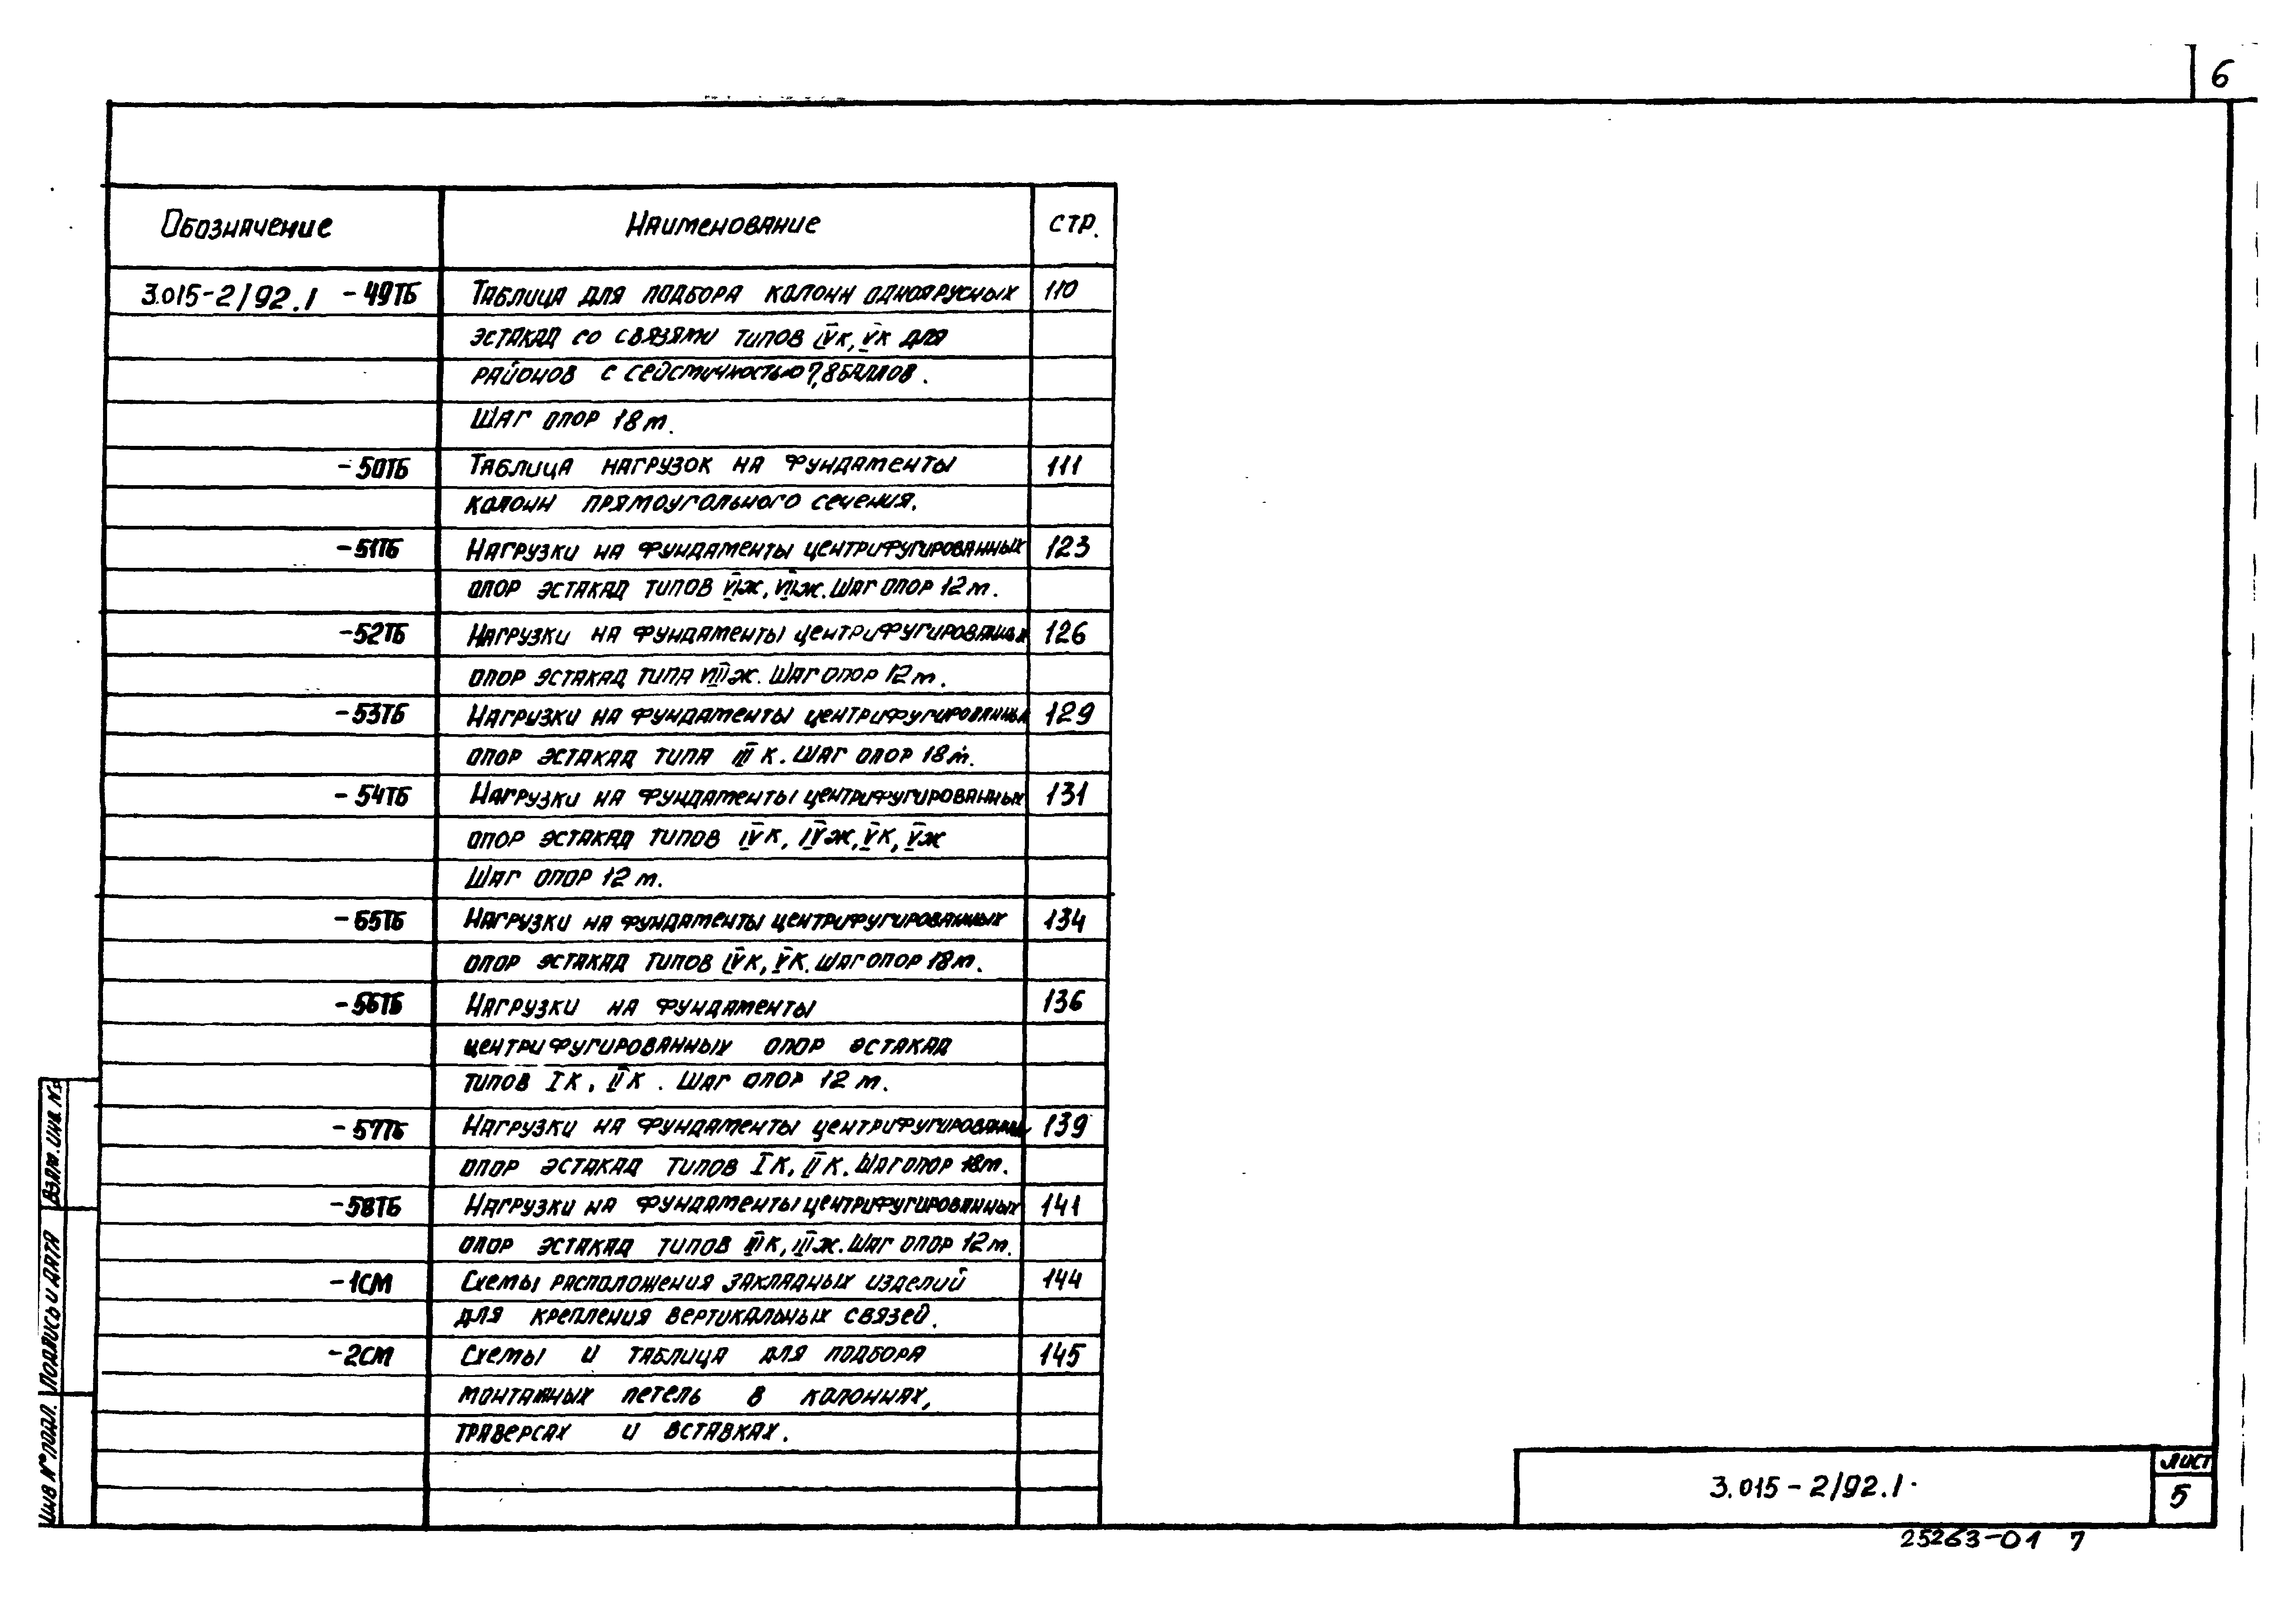 6
Обозначение Наименование стр.
3.015-2/92.1 -49ТБ Таблица для подбора колонн одноярусных 110
эстакад со связями типов IVк, Vк для
районов с сейсмичностью 7,8 баллов.
Шаг опор 18м.
-50ТБ Таблица нагрузок на фундаменты 111
колонн прямоугольного сечения.
-51ТБ Нагрузки на фундаменты центрифугированных 123
опор эстакад типов VIж, VIIж. Шаг опор 12м.
-52ТБ Нагрузки на фундаменты центрифугированных 126
опор эстакад типа VIIIж. Шаг опор 12м.
-53ТБ Нагрузки на фундаменты центрифугированных 129
опор эстакад типа III к. Шаг опор 18м.
-54ТБ Нагрузки на фундаменты центрифугированных 131
опор эстакад типов IVк, IVж, Vк, Vж
Шаг опор 12м.
-55ТБ Нагрузки на фундаменты центрифугированных 134
опор эстакад типов IVк, Vк. Шаг опор 18м.
-56ТБ Нагрузки на фундаменты 136
центрифугированных опор эстакад
типов Iк, IIк. Шаг опор 12м.
-57ТБ Нагрузки на фундаменты центрифугированных 139
опор эстакад типов Iк, IIк. Шаг опор 18м.
-58ТБ Нагрузки на фундаменты центрифугированных 141
опор эстакад типов IIIк, IIIж. Шаг опор 12м.
-1СМ Схемы расположения закладных изделий 144
для крепления вертикальных связей.
-2СМ Схемы и таблица для подбора 145
монтажных петель в колоннах,
траверсах и вставках.
Взам. инв. №
Подпись и дата
Инв № подл.
3.015-2/92.1
Лист
5
25263-01 7